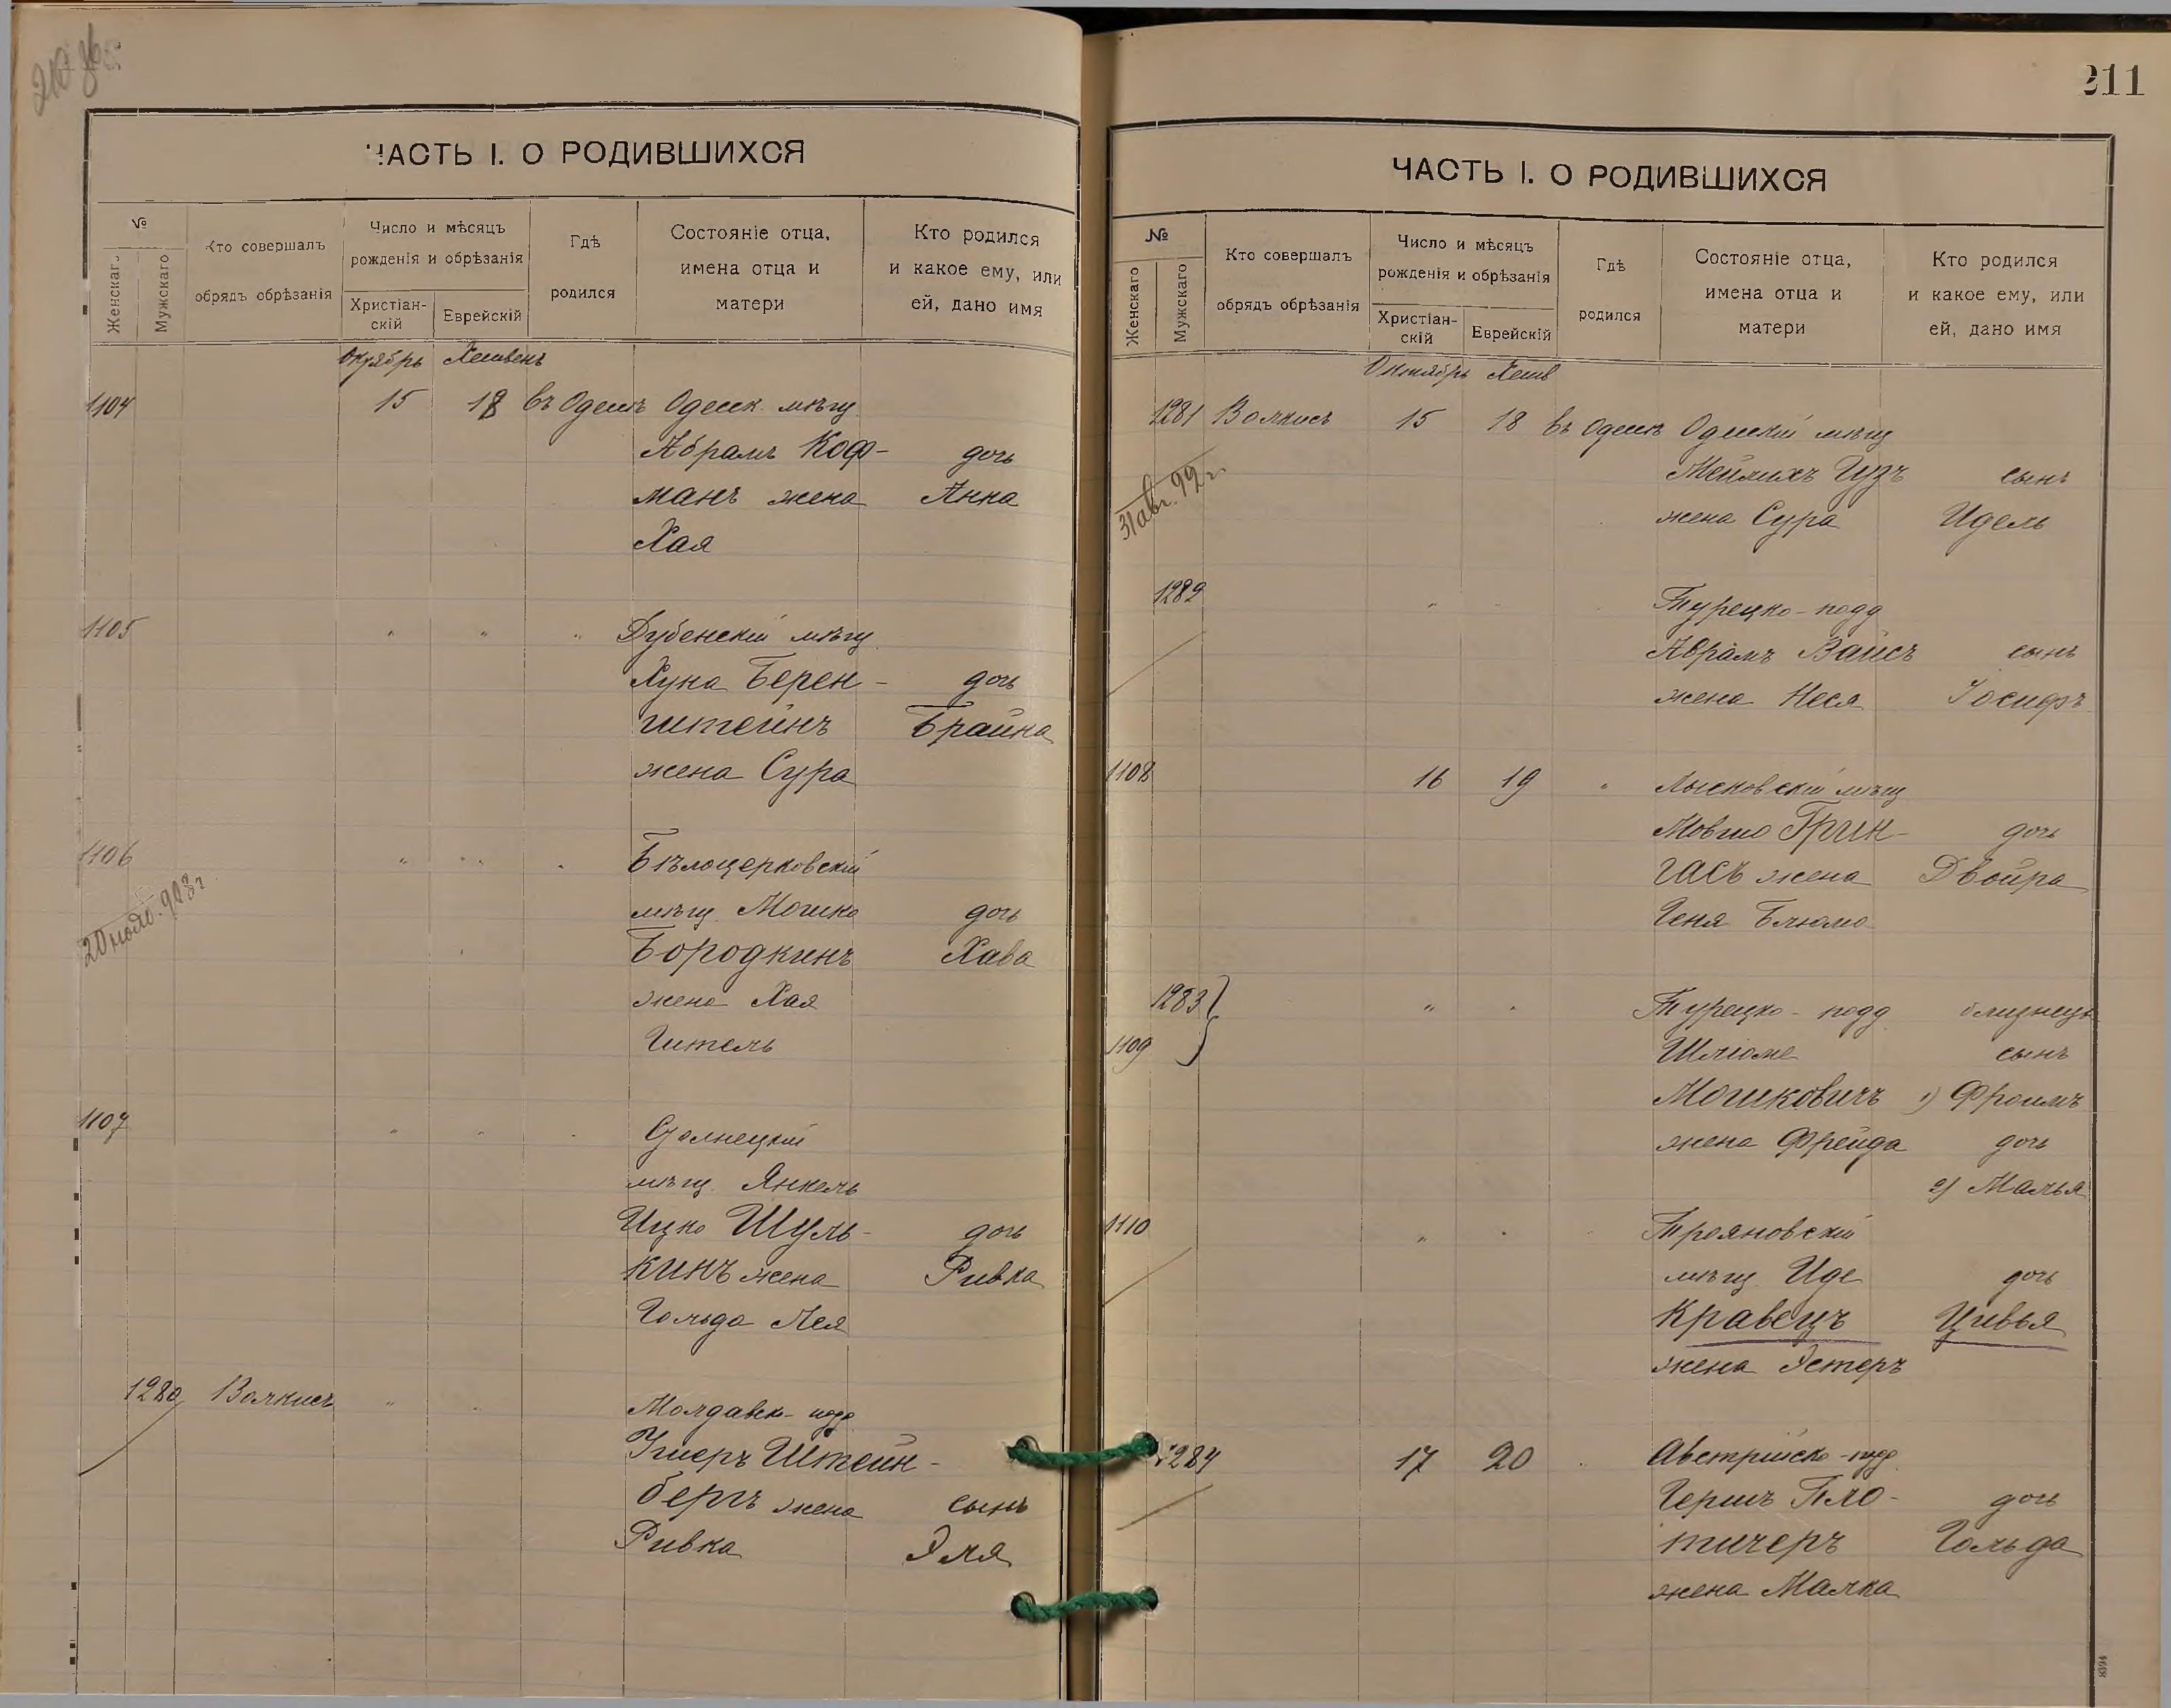 210 об.
ЧАСТЬ I. О РОДИВШИХСЯ
№
Женскаго
Мужскаго
Кто совершалъ
обрядъ обрѣзанія
Число и мѣсяцъ
рожденія и обрѣзанія
Христіан-
скій
Еврейскій
Гдѣ
родился
Состояніе отца,
имена отца и
матери
Кто родился
и какое ему, или
ей, дано имя
Октябрь Хешвенъ
1104 15 18 въ Одессѣ Одесск. мѣщ.
Абрамъ Коф- дочь
манъ жена Анна
Хая
1105 " " " Дубенскій мѣщ.
Хуна Берен- дочь
штейнъ Брайна
жена Сура
1106 " " " Бѣлоцерковскій
20 нояб. 908 г.
мѣщ. Мошко дочь
Бородкинъ Хава
жена Хая
Гитель
1107 " " "
мѣщ. Янкель
Ицко Шуль- дочь
кинъ жена Ривка
Гольда Лея
1280 Волкисъ " " Молдавск- подд
Ушеръ Штейн-
бергъ жена сынъ
Ривка Эля
211
ЧАСТЬ I. О РОДИВШИХСЯ
№
Женскаго
Мужскаго
Кто совершалъ
обрядъ обрѣзанія
Число и мѣсяцъ
рожденія и обрѣзанія
Христіан-
скій
Еврейскій
Гдѣ
родился
Состояніе отца,
имена отца и
матери
Кто родился
и какое ему, или
ей, дано имя
Октябрь Хешв
1281 Волкисъ 15 18 въ Одессѣ Одесскій мѣщ
31 авг. 99 г.
Мейлихъ Гузъ сынъ
жена Сура Идель
1282 " " Турецко-подд
Абрамъ Вайсъ сынъ
жена Неся Іосифъ
1108 16 19 " Лысковскій мѣщ
Мовшо Грин- дочь
гасъ жена Двойра
Геня Блюма
1283 " " Турецко-подд близнецы
1109 Шлиоме сынъ
Мошковичъ 1) Фроимъ
жена Фрейда дочь
2) Малья
1110 " " Трояновскій
мѣщ. Иде дочь
Кравецъ Цивья
жена Эстеръ
1284 17 20 Австрійско-подд
Гершъ Пло- дочь
тичеръ Гольда
жена Малка
8394